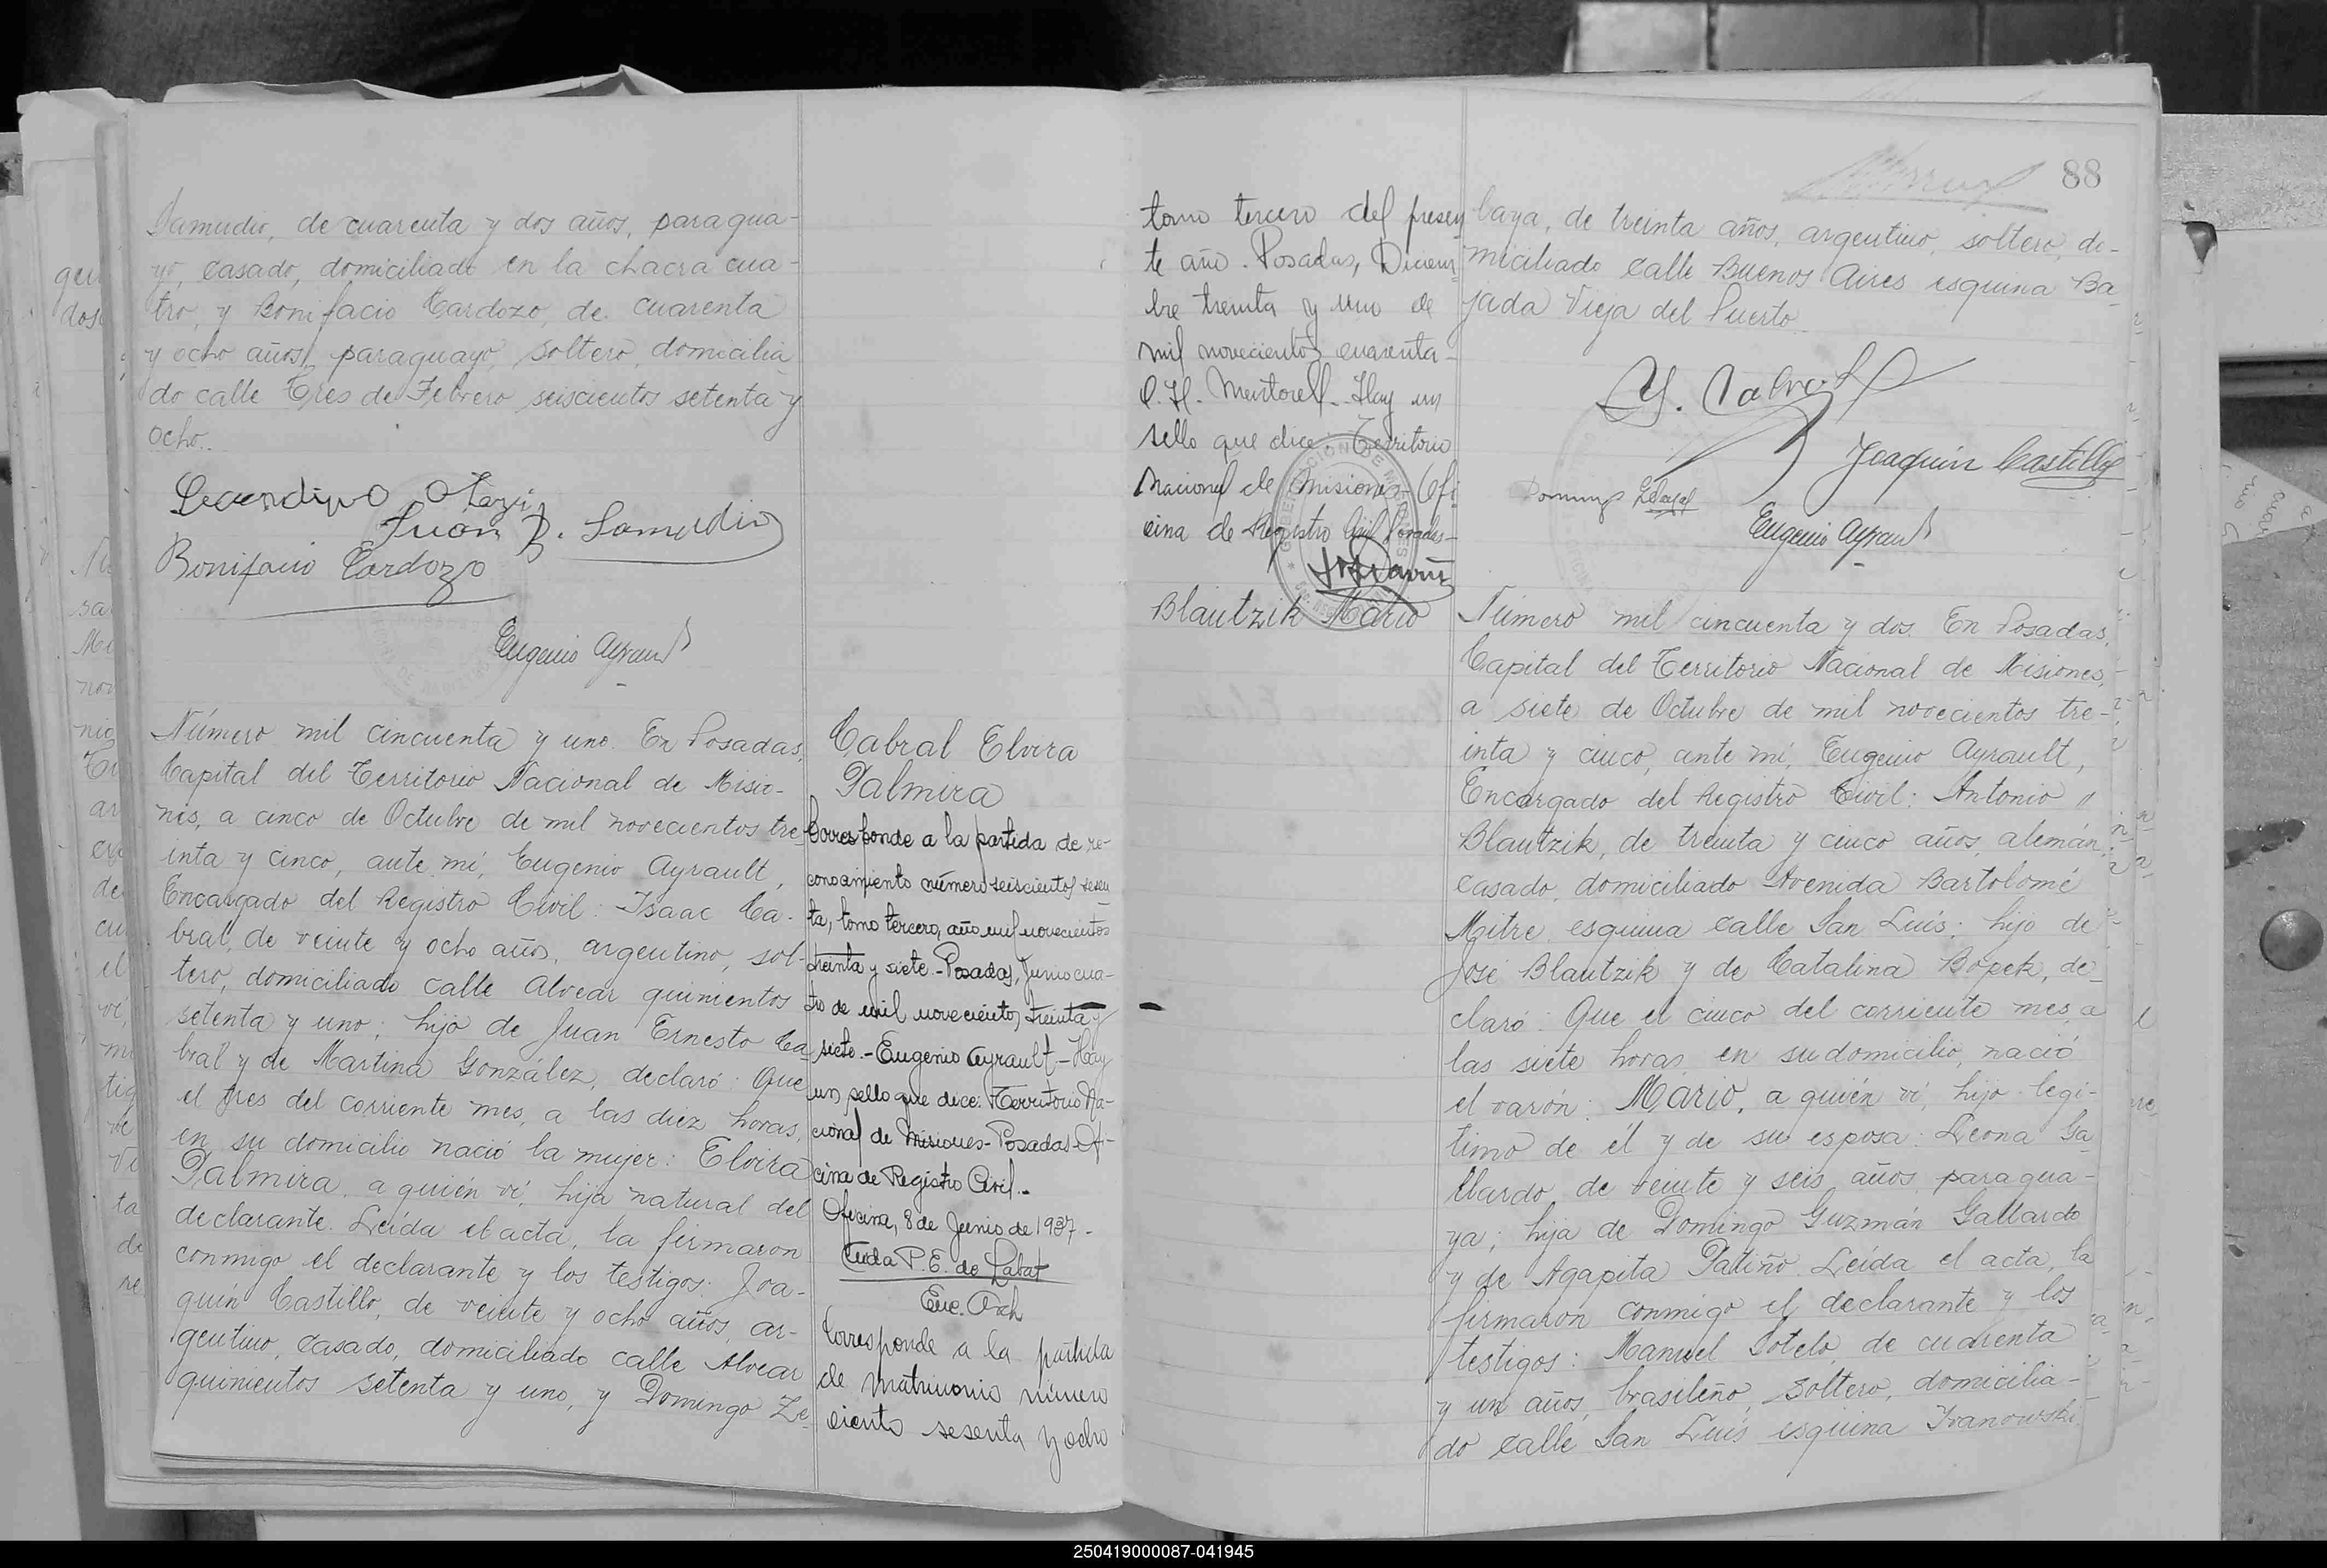 Samudio, de cuarenta y dos años, paragua-
yo, casado, domiciliado en la chacra cua-
tro, y Bonifacio Cardozo, de cuarenta
y ocho años, paraguayo, soltero, domicilia
do calle Tres de Febrero seiscientos setenta y
ocho.
Secundino Otazú
Juan B. Samudio
Bonifacio Cardozo
Eugenio Ayrault
Número mil cincuenta y uno. En Posadas,
Capital del Territorio Nacional de Misio-
nes, a cinco de Octubre de mil novecientos tre-
inta y cinco, ante mí, Eugenio Ayrault,
Encargado del Registro Civil: Isaac Ca-
bral, de veinte y ocho años, argentino, sol-
tero, domiciliado calle Alvear quinientos
setenta y uno; hijo de Juan Ernesto Ca
bral y de Martina González, declaró: Que
el tres del corriente mes, a las diez horas,
en su domicilio nació la mujer: Elvira
Palmira, a quién ví, hija natural del
declarante. Leída el acta, la firmaron
conmigo el declarante y los testigos: Joa-
quín Castillo, de veinte y ocho años, ar-
gentino, casado, domiciliado calle Alvear
quinientos setenta y uno, y Domingo Ze-
Cabral Elvira
Palmira
Corresponde a la partida de re-
conocimiento número seiscientos sesen
ta, tomo tercero, año mil novecientos
treinta y siete.-Posadas, Junio cua-
tro de mil novecientos treinta y
siete.-Eugenio Ayrault-Hay
un sello que dice: Territorio Na-
cional de Misiones-Posadas-Ofi-
cina de Registro Civil.-
Oficina, 8 de Junio de 1937-
P. E. de Labat
Enc. Arch
Corresponde a la partida
de matrimonio número
ciento sesenta y ocho
tomo tercero del presen
te año. Posadas, Diciem-
bre treinta y uno de
mil novecientos cuarenta-
C. H. Hay un
sello que dice: Territorio
Nacional de Misiones-Ofi
cina de Registro Civil Posadas-
88
baya, de treinta años, argentino, soltero, do-
miciliado calle Buenos Aires esquina Ba-
jada Vieja del Puerto.
Y. Cabral
Joaquín Castillo
Domingo
Eugenio Ayrault
Blautzik Mario
Número mil cincuenta y dos. En Posadas,
Capital del Territorio Nacional de Misiones,
a siete de Octubre de mil novecientos tre-
inta y cinco, ante mí, Eugenio Ayrault,
Encargado del Registro Civil: Antonio
Blautzik, de treinta y cinco años, alemán,
casado, domiciliado Avenida Bartolomé
Mitre esquina calle San Luis; hijo de
José Blautzik y de Catalina Bopek, de-
claró: Que el cinco del corriente mes, a
las siete horas, en su domicilio, nació
el varón: Mario, a quién ví, hijo legí-
timo de él y de su esposa: Leona Ga
llardo, de veinte y seis años, paragua-
ya; hija de Domingo Guzmán Gallardo
y de Agapita Patiño. Leída el acta, la
firmaron conmigo el declarante y los
testigos: Manuel Sotelo, de cuarenta
y un años, brasileño, soltero, domicilia-
do calle San Luis esquina Ivanowski,
250419000087-041945